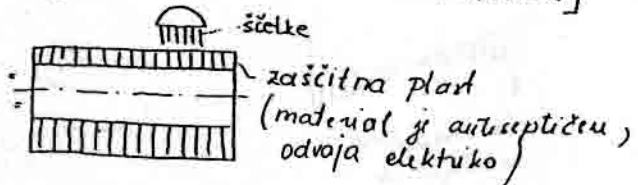 ščetke
zaščitna plast
(material je antiseptičen,
odvaja elektriko)